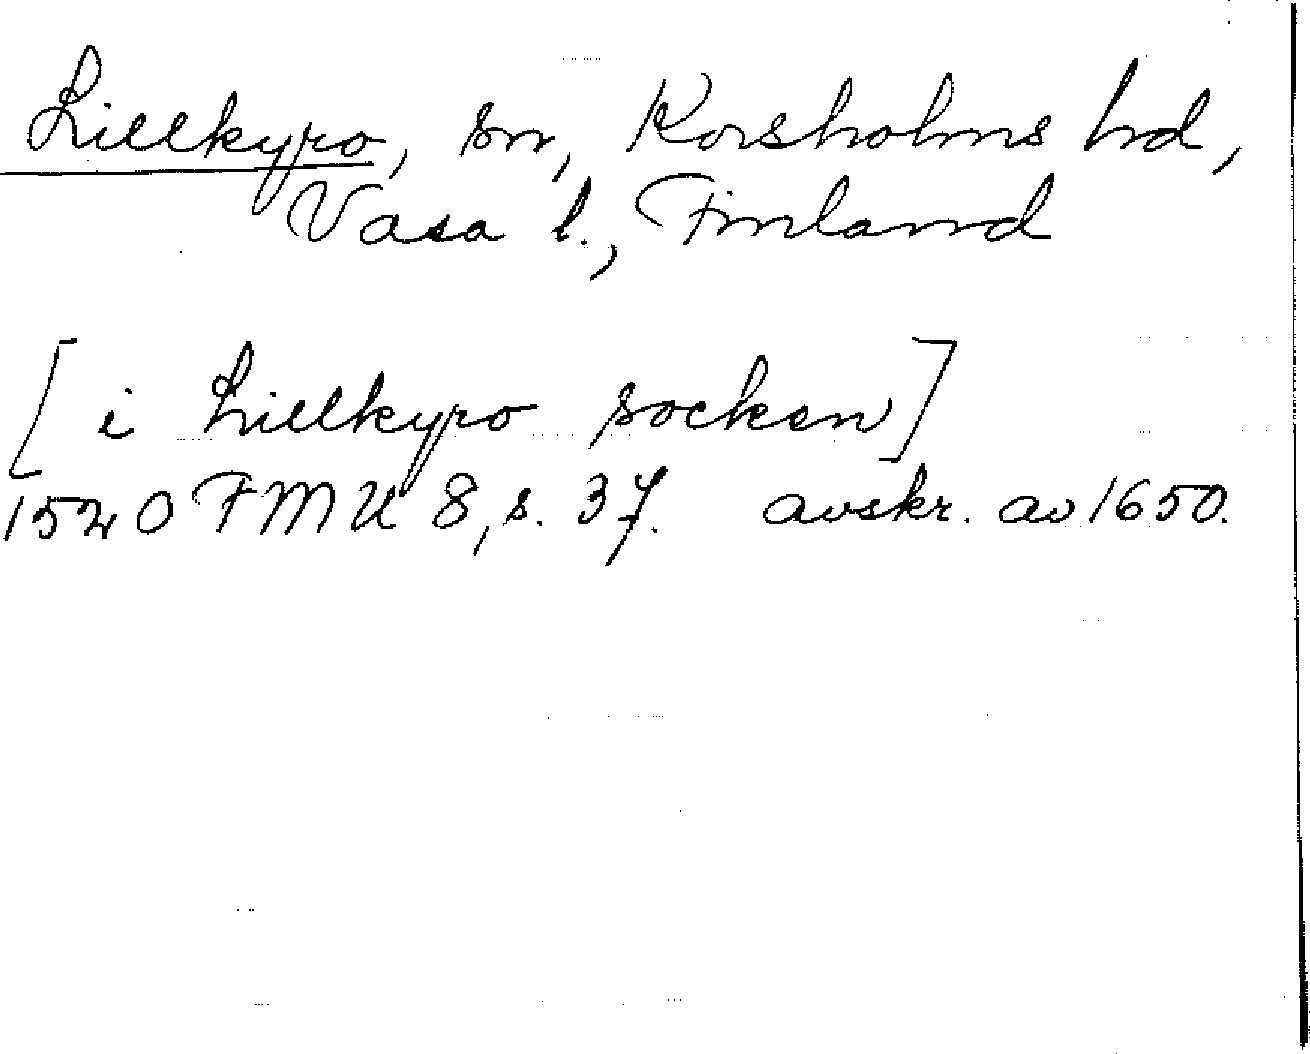 Lillkyro, sn, Korsholms hd,
Vasa l., Finland
[i Lillkyro socken]
1540 FMU 8, s. 37. avskr. av 1650.